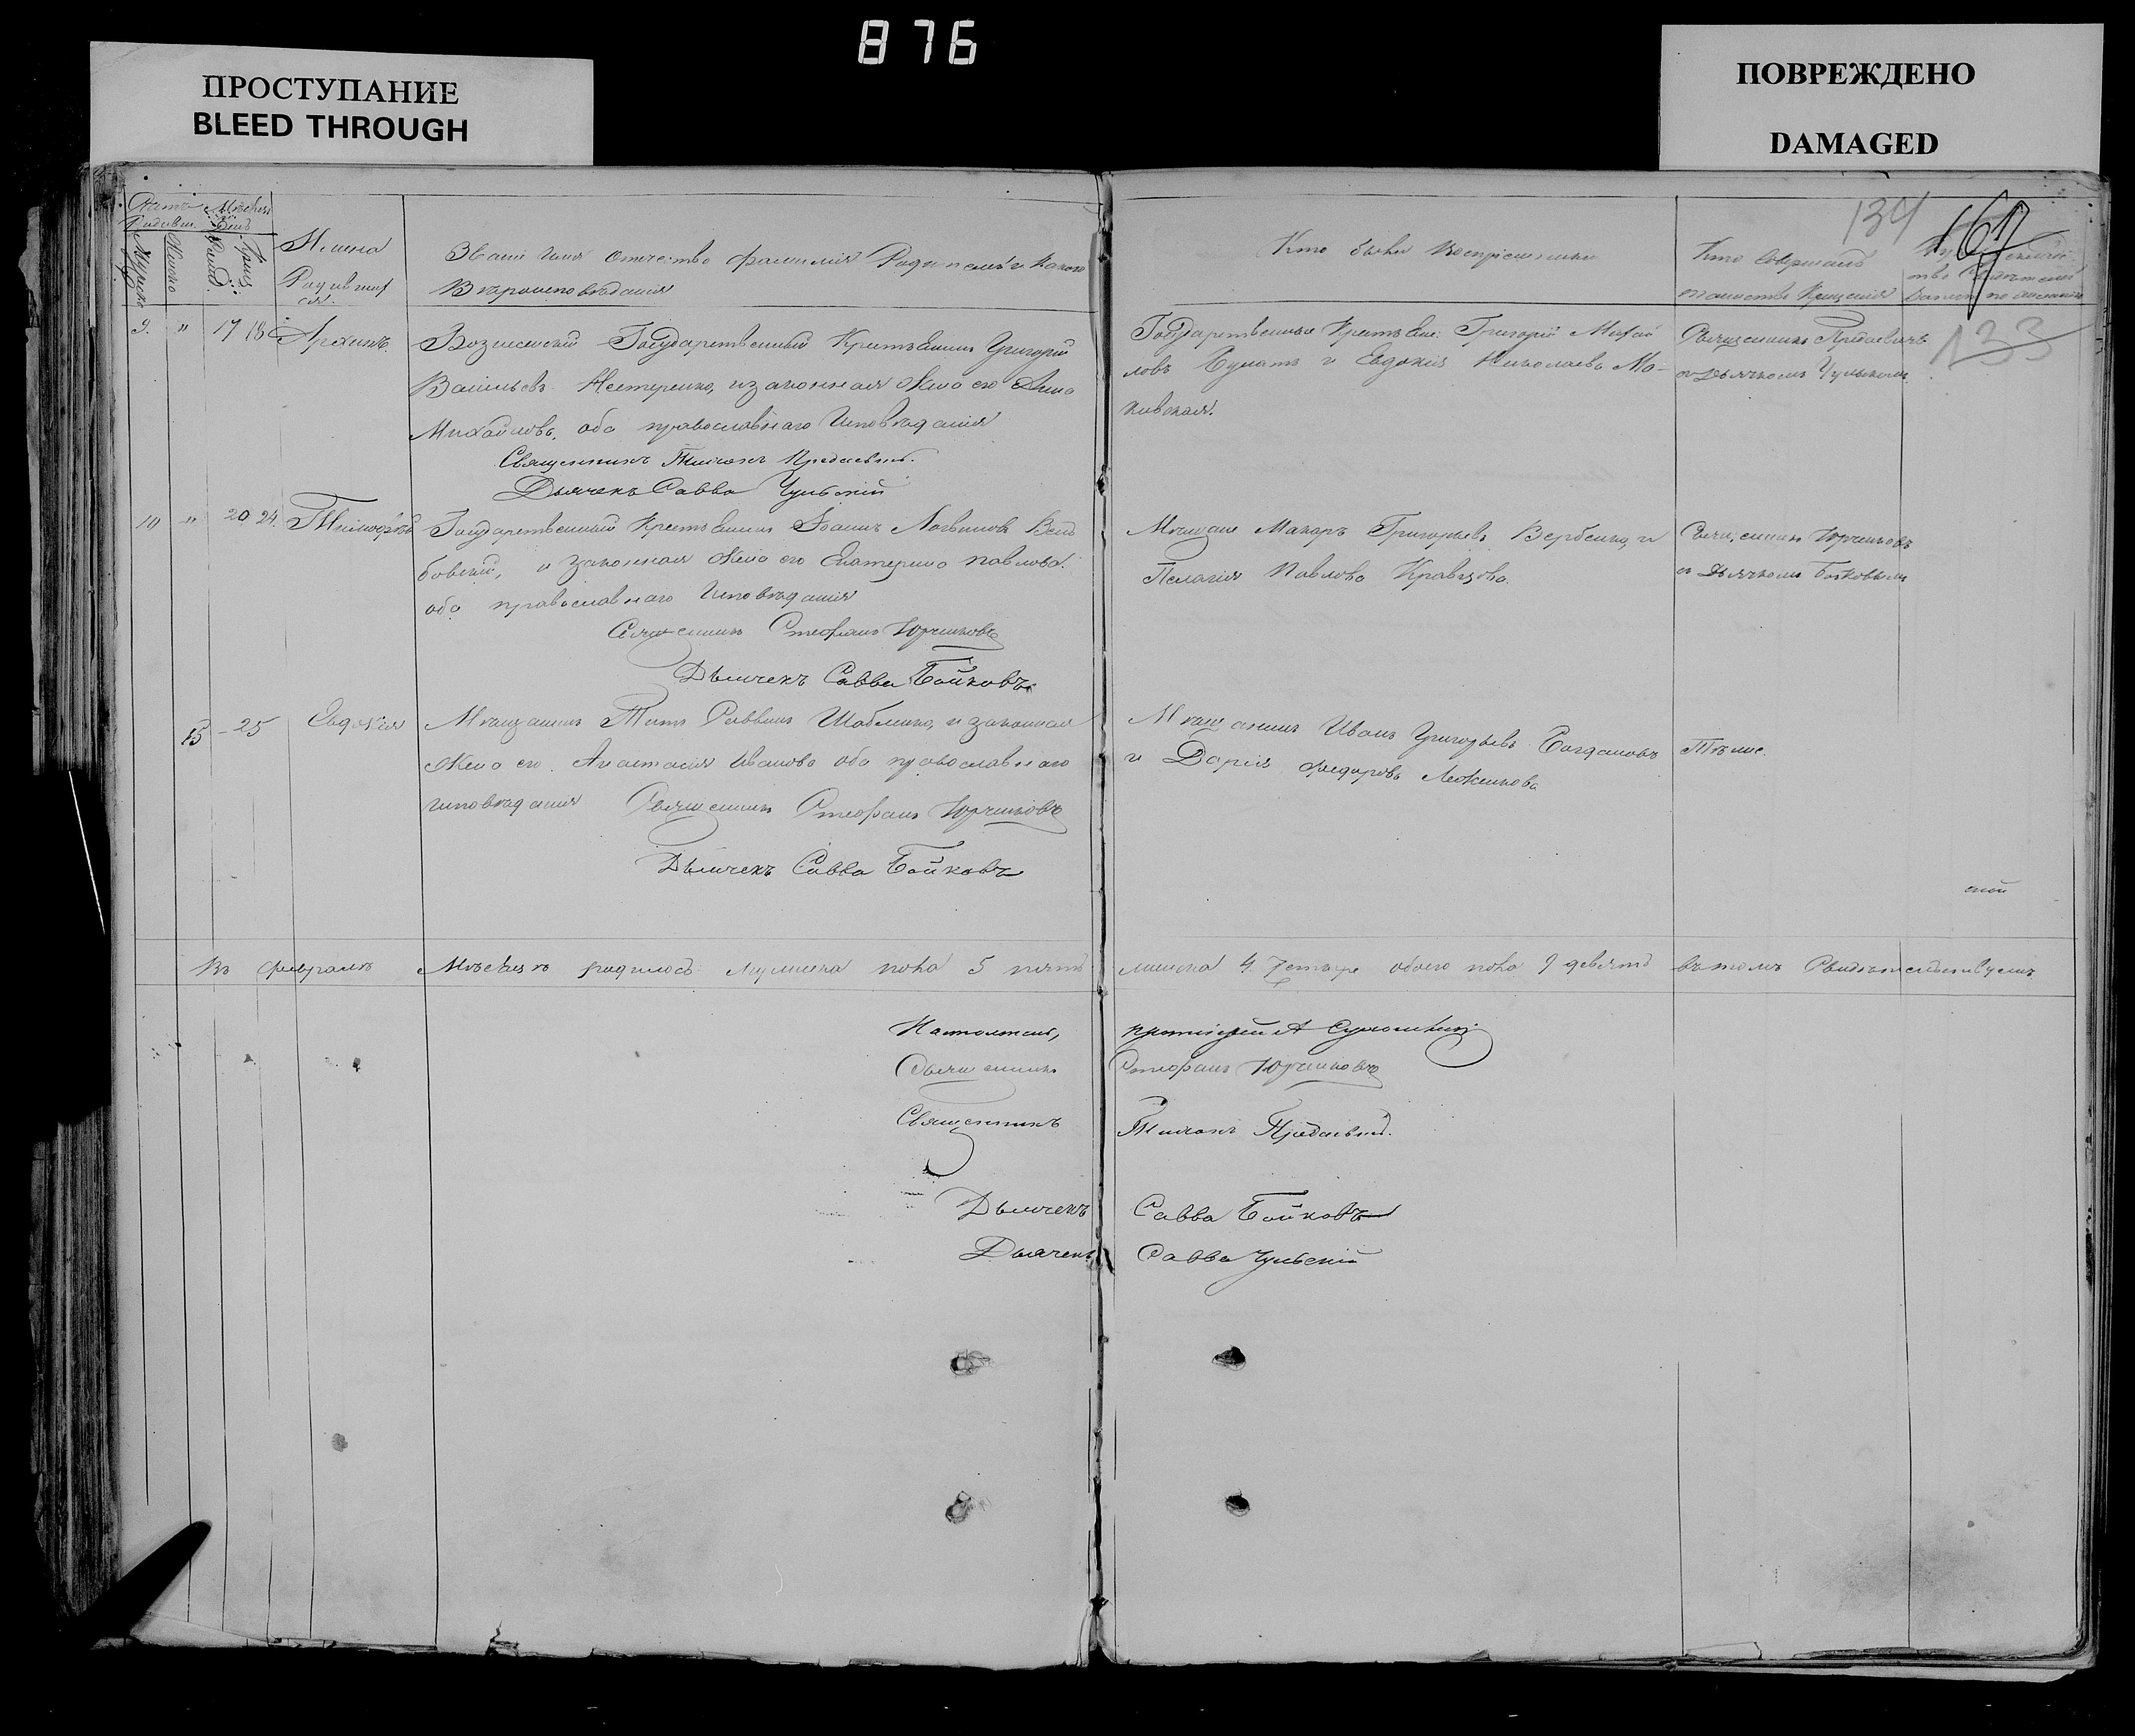 876
ПРОСТУПАНИЕ
BLEED THROUGH
ПОВРЕЖДЕНО
DAMAGED
134
167
133
Имена
Родившихся
Званіе Имя Отчество фамилія Родителей и Какого
Вѣроисповѣданія
Кто были Воспріемники
Кто Совершалъ
таинство Крещенія
9. " 17 18 Архипъ.
Вознесенскій Государственный Крестьянинъ Григорій
Васильевъ Нестеренко, и законная Жена его Анна
Михайлова, оба православнаго Исповѣданія
Священникъ Тимонъ
Дьячекъ Савва Чульскій
Государственные Крестьяне: Григорій Михай
ловъ и Евдокія Николаева Ма-
ковская.
Священникъ
съ Дьячкомъ Чульскимъ
10 " 20 24. Тимофѣй
Государственный Крестьянинъ Іоаннъ Логвиновъ
и законная Жена его Екатерина Павлова.
оба православнаго Исповѣданія
Священникъ Стефанъ Юрчиковъ
Дьячекъ Савва Бойковъ
Мѣщане Макаръ Григорьевъ Вербенко, и
Пелагія Павлова Кравцова.
Священникъ Юрчиковъ
съ Дьячкомъ Бойковымъ
15 - 25 Евдокія
Мѣщанинъ Титъ Саввинъ Шабленко, и законная
Жена его Анастасія Иванова оба православнаго
исповѣданія Священникъ Стефанъ Юрчиковъ
Дьячекъ Савва Бойковъ
Мѣщанинъ Иванъ Григорьевъ Богдановъ
и Дарія Федорова
Тѣ же.
Въ Февралѣ Мѣсяцѣ родилось Мужеска пола 5 пять женска 4. Четыре обоего пола 9 девять въ томъ Свидѣтельствуемъ
Настоятель, протоіерей А
Священникъ Стефанъ Юрчиковъ
Священникъ Тимонъ
Дьячекъ Савва Бойковъ
Дьячекъ Савва Чульскій